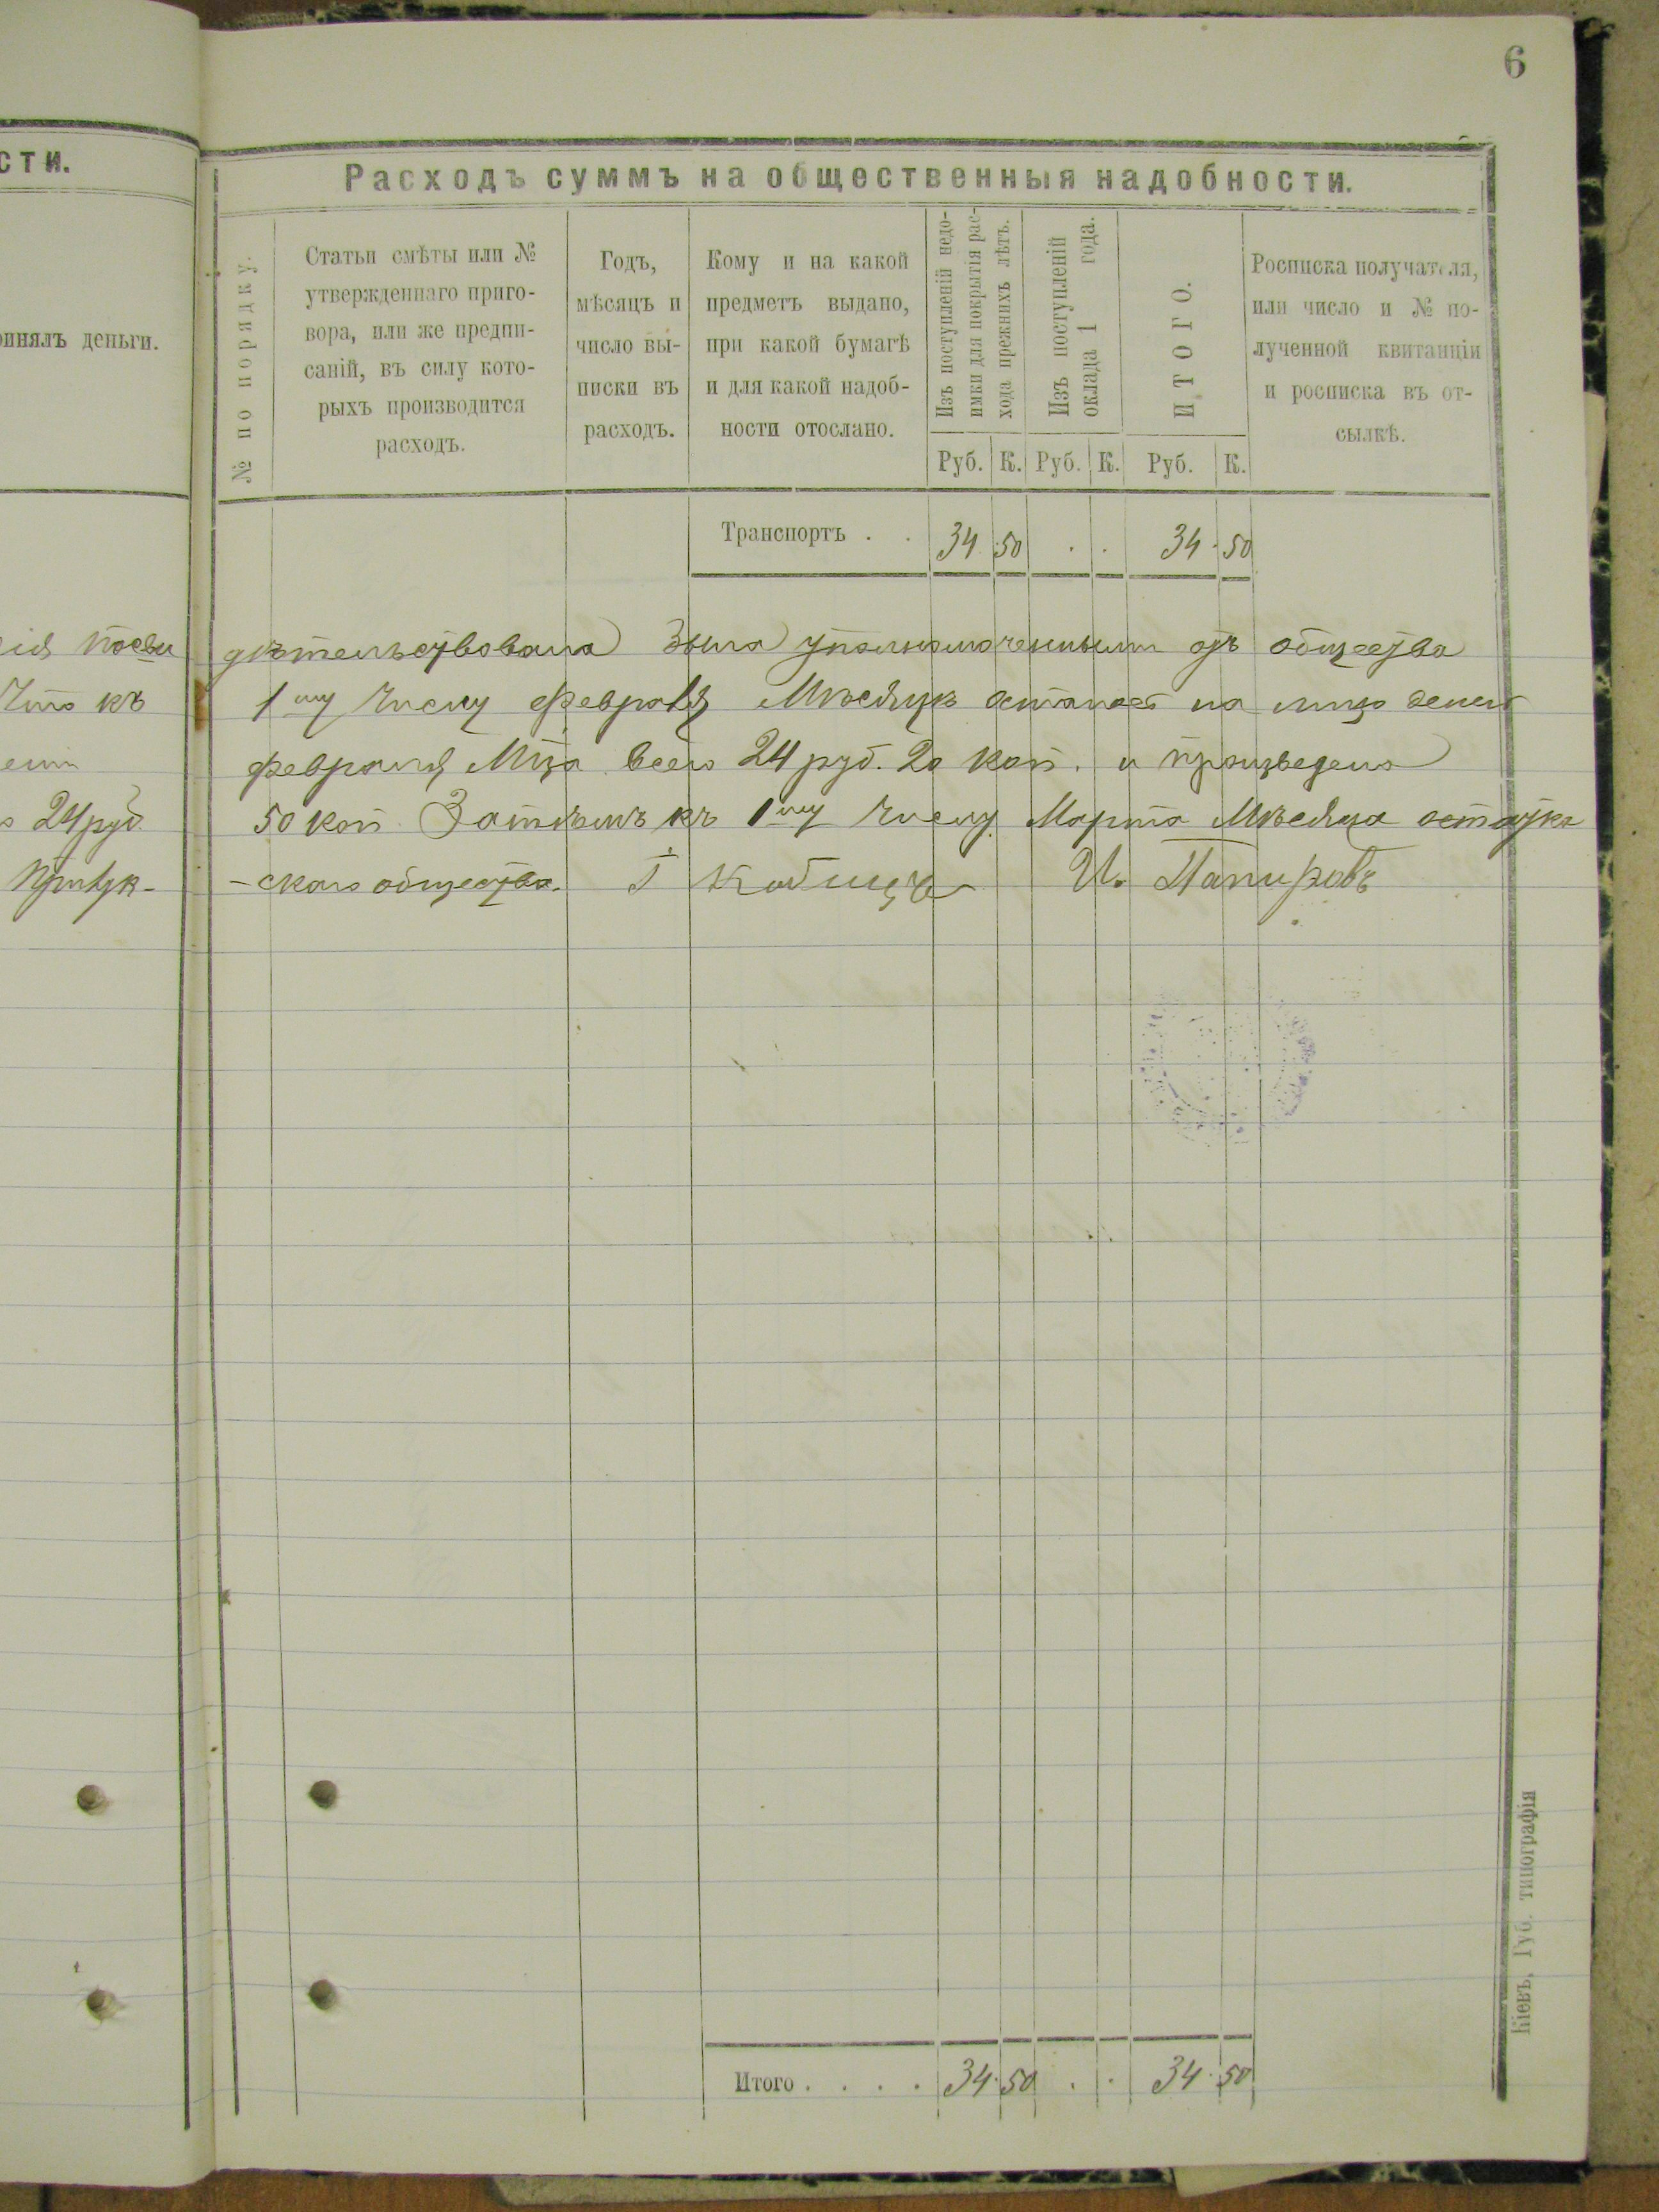 6
сти.
Расходъ суммъ на общественныя надобности.
ринялъ деньги.
№ по порядку.
Статьи смѣты или №
утвержденнаго приго-
вора, или же предпи-
саній, въ силу кото-
рыхъ производится
расходъ.
Годъ,
мѣсяцъ и
число вы-
писки въ
расходъ.
Кому и на какой
предметъ выдано,
при какой бумагѣ
и для какой надоб-
ности отослано.
Изъ поступленій недо-
имки для покрытія рас-
хода прежнихъ лѣтъ.
Изъ поступленій
оклада 1 года.
ИТОГО.
Росписка получателя,
или число и № по-
лученной квитанціи
и росписка въ от-
сылкѣ.
Руб. К. Руб. К. Руб. К.
Транспортъ . . 34 50 . . 34 50
дѣтельствована была уполномоченными отъ общества
что къ 1му числу февраля Мѣсяцъ остаток на лицо денег
февраля Мца всего 24 руб. 20 коп. и произведено
24 руб. 50 коп Затѣмъ къ 1му числу Марта Мѣсяца остатка
-скаго общества. И. Папировъ
Итого . . . . 34 50 . . 34 50
Кіевъ, Губ. типографія